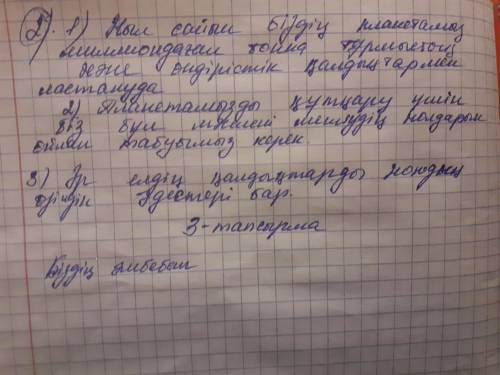 2). 1) Жыл сайын біздің планетамыз
миллиондаған тонна тұрмыстық
және өндірістік қалдықтармен
ластануда
2) Планетамызды құтқару үшін
біз бұл мәселені шешудің жолдарын
ойлап табуымыз керек.
3) Әр елдің қалдықтарды жоюдың
өзіндік әдістері бар.
3-тапсырма
Біздің әмбебап